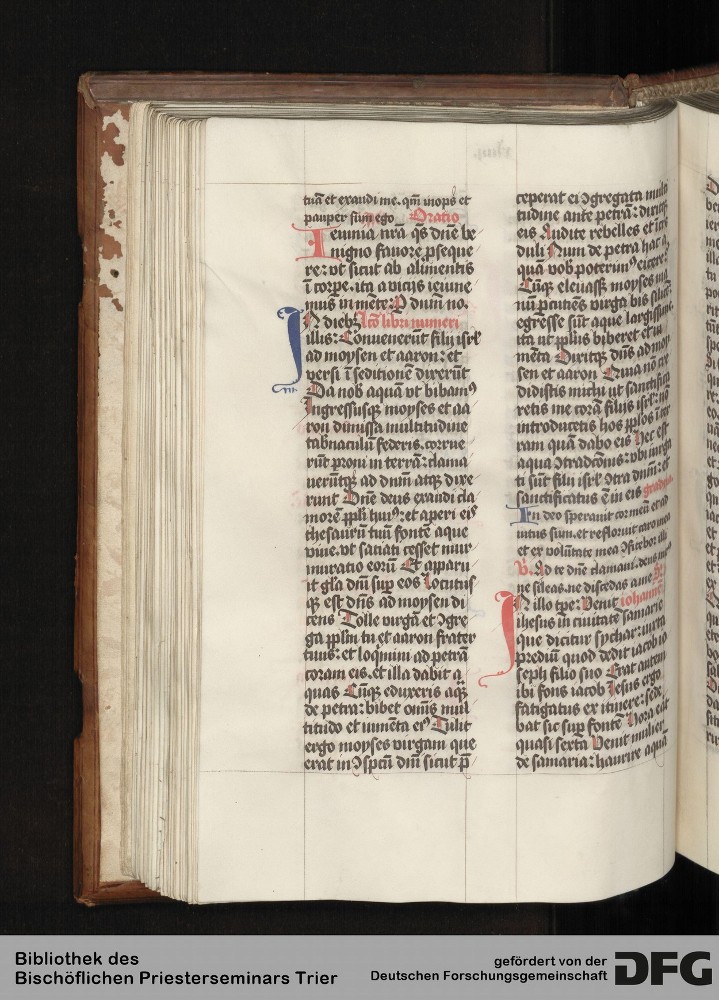 tuā et exaudi me. qm̄ inops et
pauper sum ego Oratio
Ieiunia nr̄a qs dne be
nigno fauore pseque
re: vt sicut ab alimentis
ī corpe. ita a vicijs ieiune
mus in mēte: P dnm no.
In diebꝫ Lc̄o libri numeri
illis: Conuenerūt filij isrl̓
ad moysen et aaron: et
versi ī seditionē dixerūt
Da nob aquā vt bibamꝰ
Ingressusqꝫ moyses et aa
ron dimissa multitudine
tabnaculū federis. corrue
rūt proni in terrā: clama
uerūtqꝫ ad dnm atqꝫ dixe
runt Dnē deus exaudi cla
morē ppli huiꝰ: et aperi eis
thesaurū tuū fontē aque
viue. vt saciati cesset mur
muratio eorū Et apparu
it gl̓a dn̄i sup eos Locutus
qꝫ est dn̄s ad moysen di
cens Tolle virgā et ↄgre
ga pplm tu et aaron frater
tuus: et loqmini ad petrā
coram eis. et illa dabit a
quas Cūqꝫ eduxeris aqꝫ
de petra: bibet omīs mul
titudo et iumēta eiꝰ Tulit
ergo moyses virgam que
erat in ↄspcū dn̄i sicut p̄
ceperat ei ↄgregata multi
tudine ante petrā: dixitqꝫ
eis Audite rebelles et īcre
duli Num de petra hac a
quā vob poterimꝰ eicere:
Cūqꝫ eleuasset moyses ma
nū pcutiēs virga bis silicē
egresse sūt aque largissime
ita ut pplus biberet et iu
mēta Dixitqꝫ dn̄s ad moy
sen et aaron Quia nō cre
didistis michi ut sanctifica
retis me corā filijs isrl̓: nō
introducetis hos pplos ī ter
ram quā dabo eis Hec est
aqua ↄtradcōnis: vbi iurga
ti sūt filij isrl̓ ↄtra dnm: et
sanctificatus ē in eis gradale
In deo sperauit cor meū et ad
iutus sum. et refloruit caro mea
et ex volūtate mea ↄfitebor illi
V. Ad te dnē clamaui. deus meus
ne sileas. ne discedas a me
In illo tpe: Venit iohannē
ihesus in ciuitatē samarie
que dicitur sychar: iuxta
prediū quod dedit iacob io
seph filio suo Erat autem
ibi fons iacob Iesus ergo
fatigatus ex itinere: sede
bat sic sup fontē Hora erat
quasi sexta Venit mulier
de samaria: haurire aquā
Bibliothek des
Bischöflichen Priesterseminars Trier
gefördert von der
Deutschen Forschungsgemeinschaft
DFG